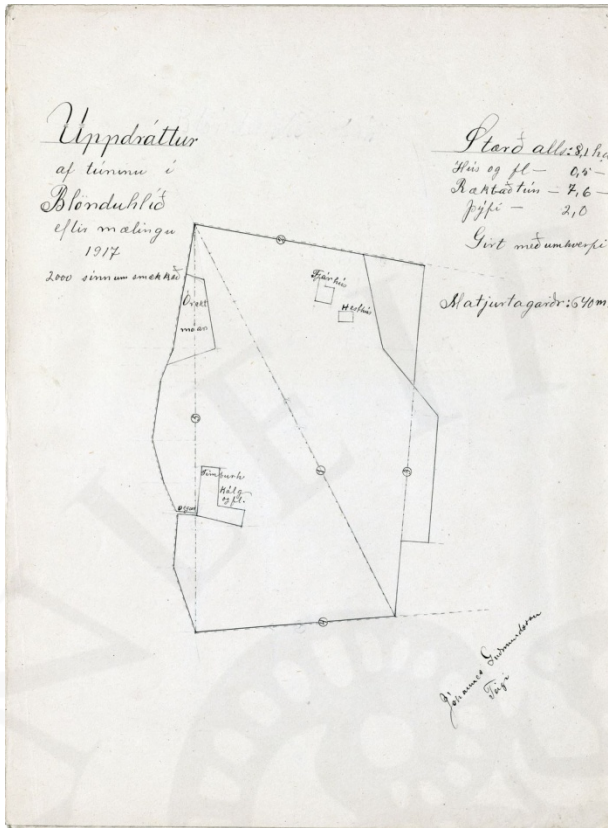 Uppdráttur
af túninu í
Blönduhlíð
eftir mælingu
1917
2000 sinnum smækkað
Stærð alls: 8,1 ha
Hús og fl — 0,5 —
Ræktað tún — 7,6 —
Þýfi — 2,0
Girt með umhverfi
Matjurtagarðr: 640 m
Fjárhús
Hesthús
Órækt
móar
Timburh
Kálg
og fl.
Jóhannes Guðmundsson
Teigi